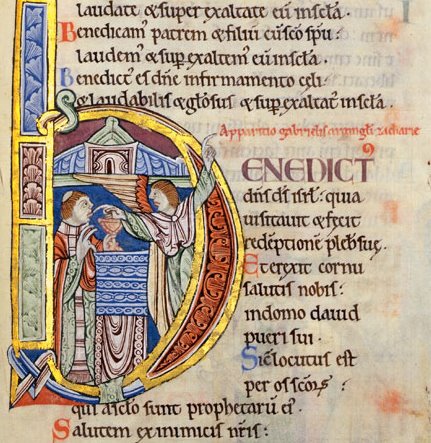 laudate & sup exaltate eū in sc̄la.
Benedicam' patrem & filiū cū sc̄o sp̄u:
laudem' & sup exaltem' eū in sc̄la.
Benedict' es dn̄e in firmamento celi:
& laudabilis & gl̄osus & sup exaltat' in sc̄la.
Apparitio gabrielis archangl̄i zacharie
BENEDICT9
dn̄s ds̄ isrl̄: quia
uisitauit & fecit
redēptionē plebis suę.
Et erexit cornu
salutis nobis:
in domo dauid
pueri sui.
Sic̄ locutus est
per os sc̄or̄:
qui a sc̄lo sunt prophetarū ei'.
Salutem ex inimicis nr̄is: